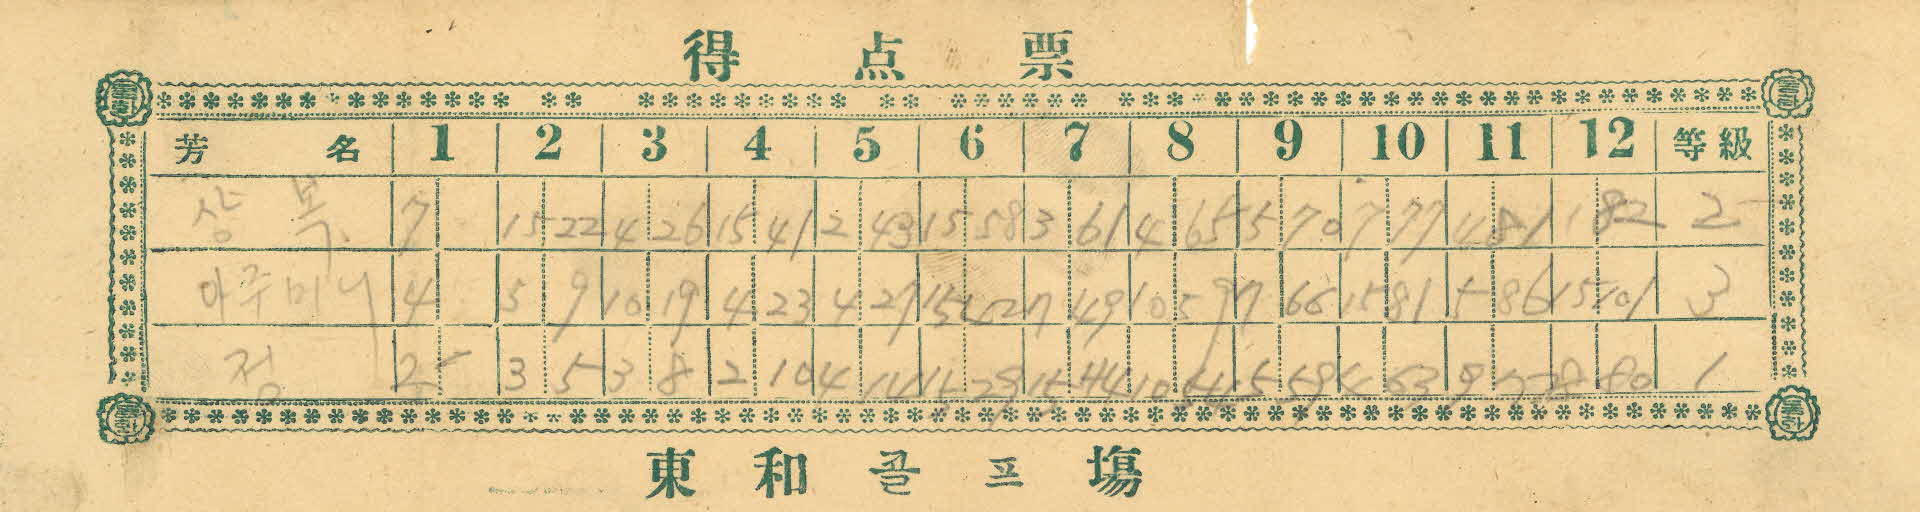 得点票
芳名 1 2 3 4 5 6 7 8 9 10 11 12 等級
상복 7 15 22 4 26 15 41 2 43 15 58 3 61 4 65 5 70 7 77 4 81 1 82 2
아주머니 4 5 9 10 19 4 23 4 27 15 42 7 49 10 59 7 66 15 81 5 86 15 101 3
정 2 3 5 3 8 2 10 4 14 15 29 15 44 10 54 5 59 4 63 9 72 8 80 1
東和골프場